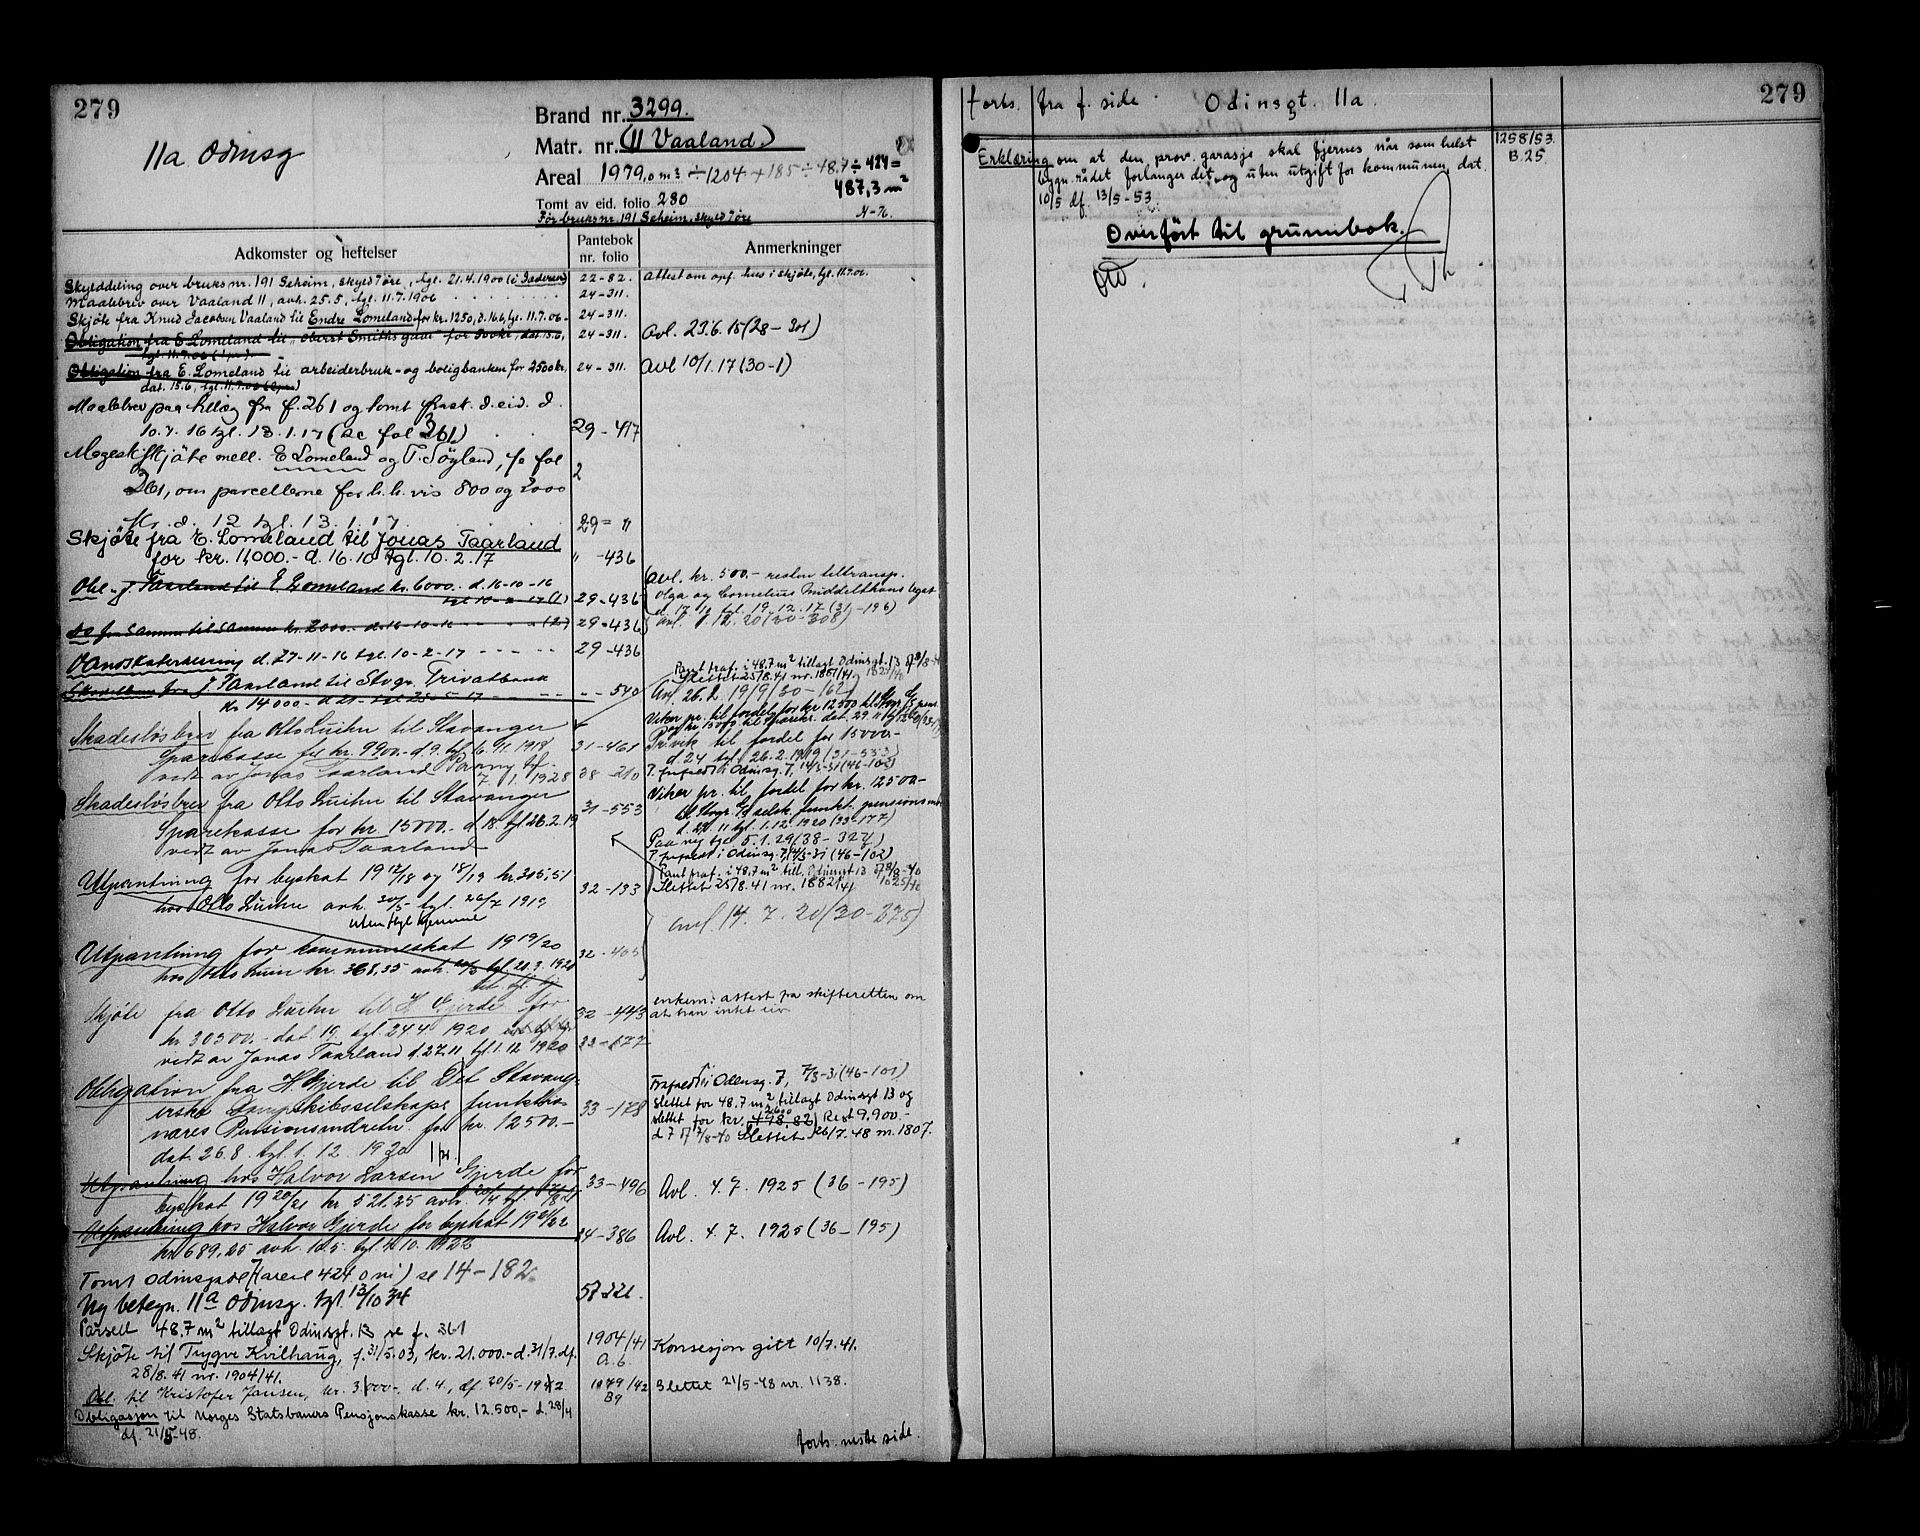 279
11a Odinsg
Brand nr. 3299.
Matr. nr. (11 Vaaland)
Areal 1979,0 m² ÷ 1204 + 185 ÷ 48.7 ÷ 424 =
487,3 m²
Tomt av eid. folio 280
Før bruksnr. 191 Seheim, skyld 1øre
Adkomster og heftelser
Pantebok
nr. folio
Anmerkninger
Skylddeling over bruks nr. 191 Seheim, skyld 1 øre, tgl. 21.4.1900 (i Jæderen) 22-82. Attest om opf. hus i skjøte, tgl. 11.7.06.
Maalebrev over Vaaland 11, avh. 25.5, tgl. 11.7.1906 24-311.
Skjøte fra Knud Jacobsen Vaaland til Endre Lomeland for kr. 1250, d. 16.6, tgl. 11.7.06- 24-311.
Obligation fra E. Lomeland til oberst Smiths gave for dat. 15.6, 24-311. Avl. 23.6.15 (28-301)
tgl. 11.7.06
Obligation fra E. Lomeland til arbeiderbruk- og boligbanken for 2500 kr, 24-311. Avl 10/1.17 (30-1)
dat. 15.6, tgl. 11.7.06
Maalebrev paa tillæg fra f. 261 og tomt frask. d. eid. d.
10.7.16 tgl. 13.1.17 (se fol 261) 29-417
Mageskiftskjøte mell. E Lomeland og T. Søyland, se fol
261, om parcellerne for h.h. vis 800 og 2000
Kr. d. 12 tgl. 13.1.17. 29= "
Skjøte fra E. Lomeland til Jonas Taarland
for kr. 11,000.- d. 16.10 tgl. 10.2.17 " -436
Obl. J. Taarland til E Lomeland kr. 6000. d. 16-10-16 Avl. kr. 500.- resten tiltransp.
tgl. 10-2-17 (1) 29-436 Olga og Cornelius Middelthons legat
d. 17 tgl. 19.12.17 (31-196)
do fra samme til samme kr. 2000.- d. 16-10-16 (2) 29-436 Avl.
d. 27-11-16 tgl. 10-2-17 29-436
Skadeslbrev fra J Taarland til Stvgr. Privatbank - - 540
kr 14000.- d. 21- tgl. 25-5-17
Pant fraf. i 48.7 m² tillagt Odinsgt. 13
Slettet 25/8.41 nr. 1881/41
Avl. 26.2 1919 (30-162)
Skadesløsbrev fra Otto Luihn til Stavanger
Sparekasse for kr. 9900.- d 9. tgl 16.9.11.1918 31-461
vedt av Jonas Taarland 38-210
7.1.1928
Viker pr. til fordel for kr 12500
Prvik til fordel for 15000.-
d. 24 tgl. 26.2.1919 (31-553)
Odinsg. 7, 14/3-31 (46-102)
Skadesløsbrev fra Otto Luihn til Stavanger 31-553
Sparekasse for kr 15000.- d 18. tgl. 26.2.19
vedt av Jonas Taarland
Viker pr. til fordel for kr. 12500.-
til Stvgr. selsk. funkt. pensions
d. 27.11 tgl. 1.12 1920 (33-177)
Paa ny tgl. 5.1.29 (38-327)
i Odinsg. 7, 14/3-31 (46-102)
Pant fraf. i 48.7 m² till. Odinsgt 13
Slettet 25/8.41 nr. 1882/41
Utpantning for byskat 1917/18 og 18/19 kr. 305,51 32-133
hos Otto Luihn avh. 30/5- tgl. 26/7 1919
uten hjemmel
avl. 14.7.20 (20-375)
Utpantning for kommuneskat 1919/20 32-405
hos Otto Luihn kr. 368,35 avh. tgl. 20.3.1920
Skjøte fra Otto Luihn til H Gjerde for 32-443
kr. 30500.- dat. 19. tgl. 24.4 1920
vedt av Jonas Taarland d. 27.11 tgl. 1.12 1920 33-177
ankem: attest fra skifteretten om
at han intet eier
Obligation fra H. Gjerde til Det Stavang-
erske Dampskibsselskaps funktio- 33-178
nærers Pensionsindretn. for kr. 12500.-
dat. 26.8. tgl. 1.12.1920 1 pr.
Frafaldt i Odinsg. 7, 7/3-31 (46-101)
Slettet for 48.7 m² tillagt Odinsgt 13 og
slettet for kr. 2600 Rest 9.900.-
Slettet 26/7.48 nr. 1807.
Utpantning hos Halvor Larsen Gjerde for 33-496 Avl. 4.7.1925 (36-195)
byskat 1920/21 kr 521.25 avh. 20/4 tgl.
Utpantning hos Halvor Gjerde for byskat 1921/22 34-386 Avl. 4.7.1925 (36-195)
kr. 689,25 avh. 10.5. tgl. 4.10.1922
Tomt Odinsgade 7 (areal 424.0 m²) se 14-182.
Ny betegn. 11a Odinsg. tgl. 12/10 34 57-221.
Parsell 48.7 m² tillagt Odinsgt. 13 se f. 361
Skjøte til Trygve Kvilhaug, f. 31/5.03, kr. 21.000.- d. 31/7. df. 1904/41 Konsesjon gitt 10/7.41.
28/8.41 nr. 1904/41. A.6.
Obl. til Kristofer Jansen, kr. 3.000-. d. 4., df 20/5-1942 1079/42 Slettet 21/5-48 nr. 1138.
B9
Obligasjon til Norges Statsbaners Pensjonskasse kr. 12.500,- d. 28/4
df. 21/5-48.
forts. neste side.
forts. fra f. side. Odinsgt. 11a. 279
Erklæring om at den prov. garasje skal fjernes når som helst 1258/53.
bygn.rådet forlanger det, og uten utgift for kommunen, dat. B.25.
10/5 df. 13/5-53.
Overført til grunnbok.